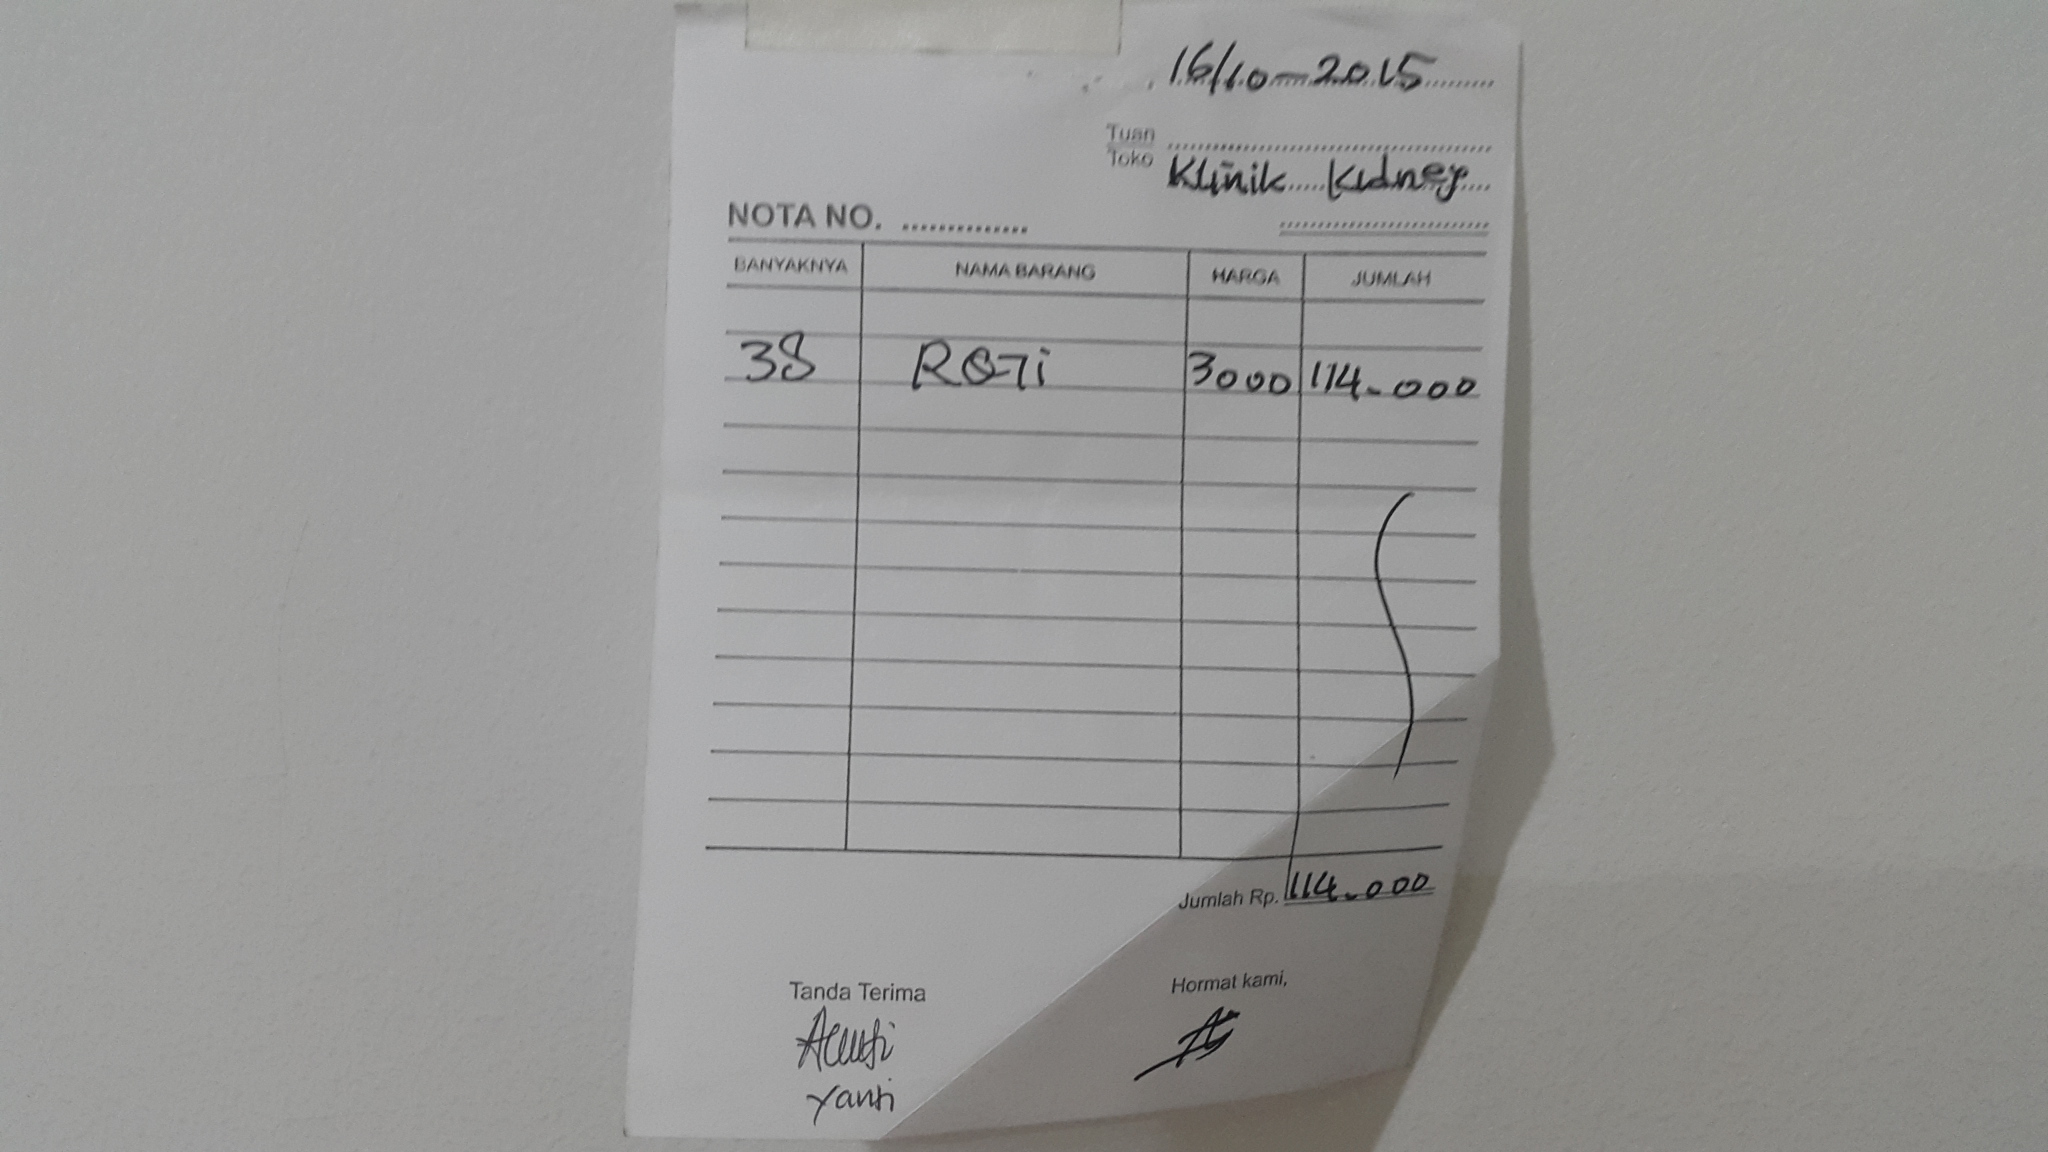 16/10-2015
Tuan
Toko Klinik Kidney
NOTA NO.
BANYAKNYA NAMA BARANG HARGA JUMLAH
38 ROTi 3000 114.000
Jumlah Rp. 114.000
Tanda Terima Hormat kami,
Yanti